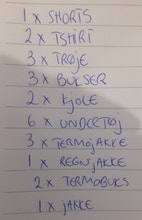 1 x SHORTS
2 x TSHIRT
3 x TRØJE
3 x BUKSER
2 x KJOLE
6 x UNDERTØJ
3 x TERMOJAKKE
1 x REGNJAKKE
2 x TERMOBUKS
1 x JAKKE